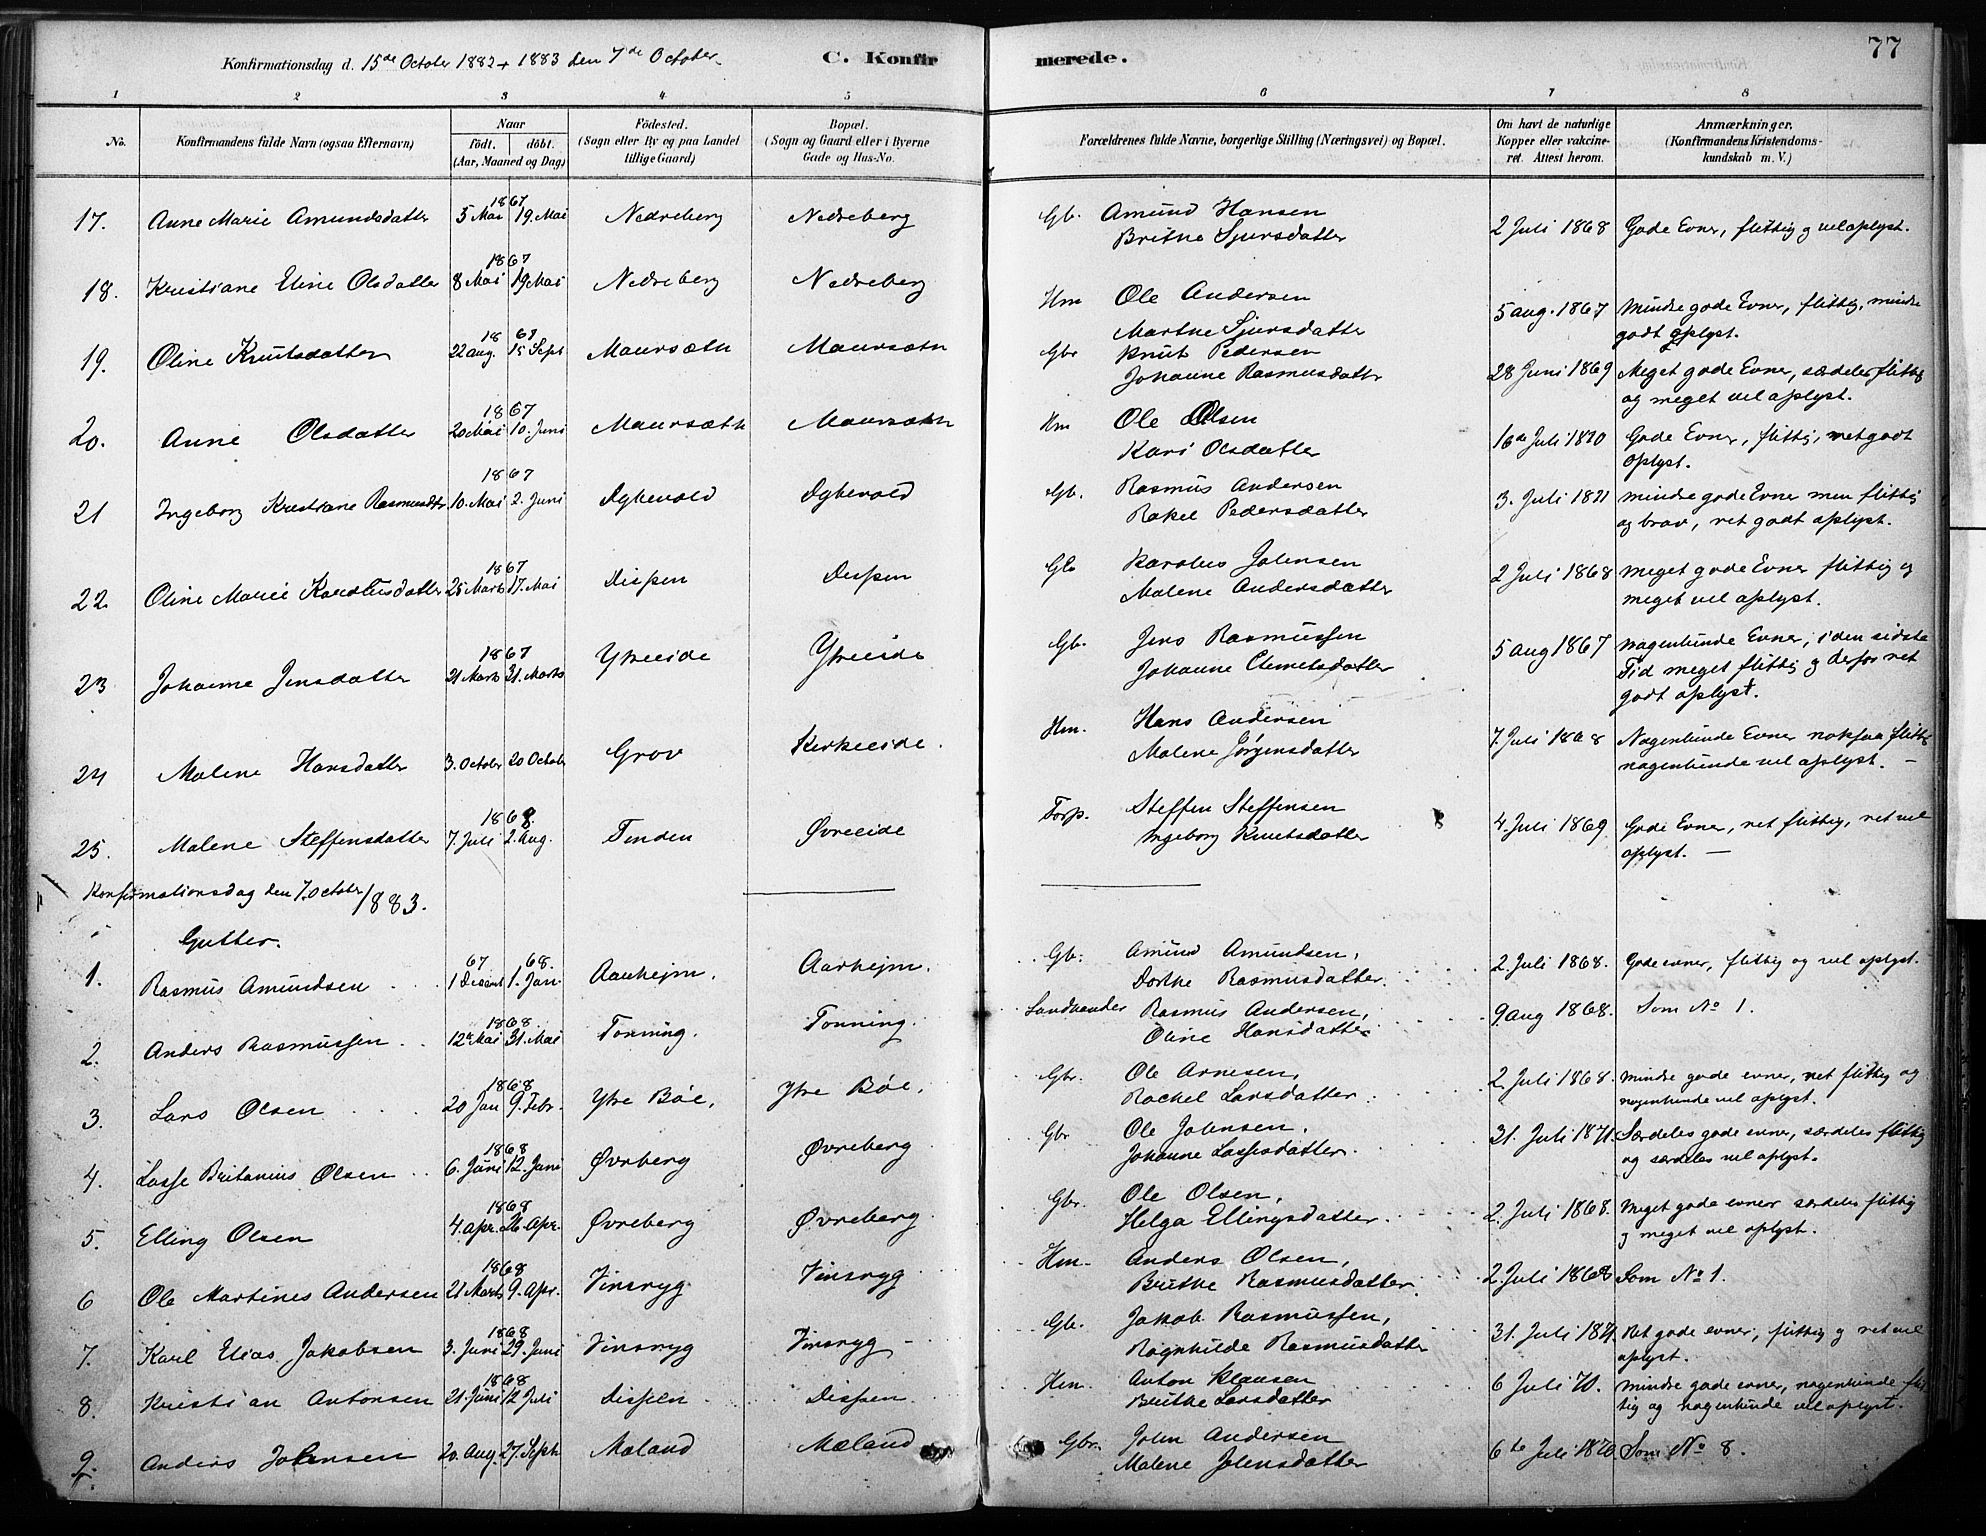 77
Konfirmationsdag d. 15de October 1882 + 1883 den 7de October.
C. Konfirmerede.
1 2 3 4 5 6 7 8
No. Konfirmandens fulde Navn (ogsaa Efternavn) Naar födt. döbt. (Aar, Maaned og Dag) Födested. (Sogn eller By og paa Landet tillige Gaard) Bopæl. (Sogn og Gaard eller i Byerne Gade og Hus-No. Forældrenes fulde Navne, borgerlige Stilling (Næringsvei) og Bopæl. Om havt de naturlige Kopper eller vakcineret. Attest herom. Anmærkninger. (Konfirmandens Kristendomskundskab m. V.)
1867
17. Anne Marie Amundsdatter 5 Mai 19. Mai Nedreberg Nedreberg Gb. Amund Hansen 2 Juli 1868 Gode Evner, flittig og vel oplyst.
Brithe Sjursdatter
1867
18. Kristiane Eline Olsdatter 8 Mai 19 Mai Nedreberg Nedreberg Hm Ole Andersen 5 aug. 1867 Mindre gode Evner, flittig, mindre
Marthe Sjursdatter godt oplyst.
1867
19. Oline Knutsdatter 22 aug. 15 Sept Maursæth Maursæth Gbr Knut Pedersen 28 Juni 1869 Meget gode Evner, særdeles flittig
Johanne Rasmusdatter og meget vel oplyst.
1867
20. Anne Olsdatter 20 Mai 10. Juni Maursæth Maursæth Hm Ole Olsen 16de Juli 1870 Gode Evner, flittig, ret godt
Kari Olsdatter oplyst.
1867
21 Ingeborg Kristiane Rasmusdtr 10. Mai 2. Juni Dybevold Dybevold Gb. Rasmus Andersen 3. Juli 1871 mindre gode Evner men flittig
Rakel Pedersdatter og brav, ret godt oplyst.
1867
22. Oline Marie Karolusdatter 25 Marts 17. Mai Dispen Dispen Gb Karolus Johnsen 2 Juli 1868 Meget gode Evner flittig og
Malene Andersdatter meget vel oplyst.
1867
23 Johanne Jensdatter 21 Marts 31. Marts Ytreeide Ytreeide Gb. Jens Rasmussen 5 aug 1867 nogenlunde Evner, i den sidste
Johanne Clemetsdatter Tid meget flittig og derfor ret
godt oplyst.
24 Malene Hansdatter 3. October 20 October Grov Kirkeeide. Hm. Hans Andersen 7. Juli 1868 Nogenlunde Evner nok saa flittig
Malene Jörgensdatter nogenlunde vel oplyst. —
1868.
25. Malene Steffensdatter 7. Juli 2. Aug. Tinden Øvreeide Torp. Steffen Steffensen 4. Juli 1869 Gode Evner, ret flittig, ret vel
Ingeborg Knutsdatter oplyst. —
Konfirmationsdag den 7. October 1883.
Gutter.
67 68.
1. Rasmus Amundsen 1 Decemb 1. Jan. Aarhejm. Aarhejm. Gb. Amund Amundsen, 2. Juli 1868. Gode evner, flittig og vel oplyst.
Dorthe Rasmusdatter.
1868
2. Anders Rasmussen 12te Mai 31. Mai Tonning. Tonning. Landhandler Rasmus Andersen, 9. aug 1868. Som No 1.
Oline Hansdatter
1868
3. Lars Olsen 20 Jan 9. Febr. Ytre Böe. Ytre Böe. Gbr. Ole Arnesen, 2. Juli 1868. Mindre gode evner, ret flittig og
Rachel Larsdatter. nogenlunde vel oplyst.
1868
4. Lasse Britanius Olsen 6. Juni 12. Juni Øvrberg Øvreberg Gbr Ole Johnsen. 31. Juli 1871. Særdeles gode evner, særdeles flittig
Johanne Lassesdatter. og særdeles vel oplyst.
1868
5. Elling Olsen 4. apr. 26 Apr. Øvreberg Øvreberg. Gbr. Ole Olsen, 2. Juli 1868. Meget gode evner særdeles flittig
Helga Ellingsdatter. og meget vel oplyst.
1868
6 Ole Martines Andersen 21 Marts 9. Apr. Vinsryg Vinsryg Hm. Anders Olsen, 2. Juli 1868 Som No 1.
Brithe Rasmusdatter.
1868
7. Karl Elias Jakobsen 3. Juni 29. Juni Vinsryg Vinsryg Gb. Jakob Rasmussen, 31. Juli 1871. Ret gode evner, flittig og ret vel
Ragnhilde Rasmusdatter oplyst.
1868
8. Kristian Antonsen 21. Juni 12 Juli Dispen Dispen. Hm. Anton Klausen 6 Juli 70. mindre gode evner, nogenlunde flittig
Brithe Larsdatter og nogenlunde vel oplyst.
9. Anders Johnsen 20. Aug. 27. Septb Mæland Mæland Gbr. John Andersen 6te Juli 1870 Som No 8.
Malene Johnsdatter